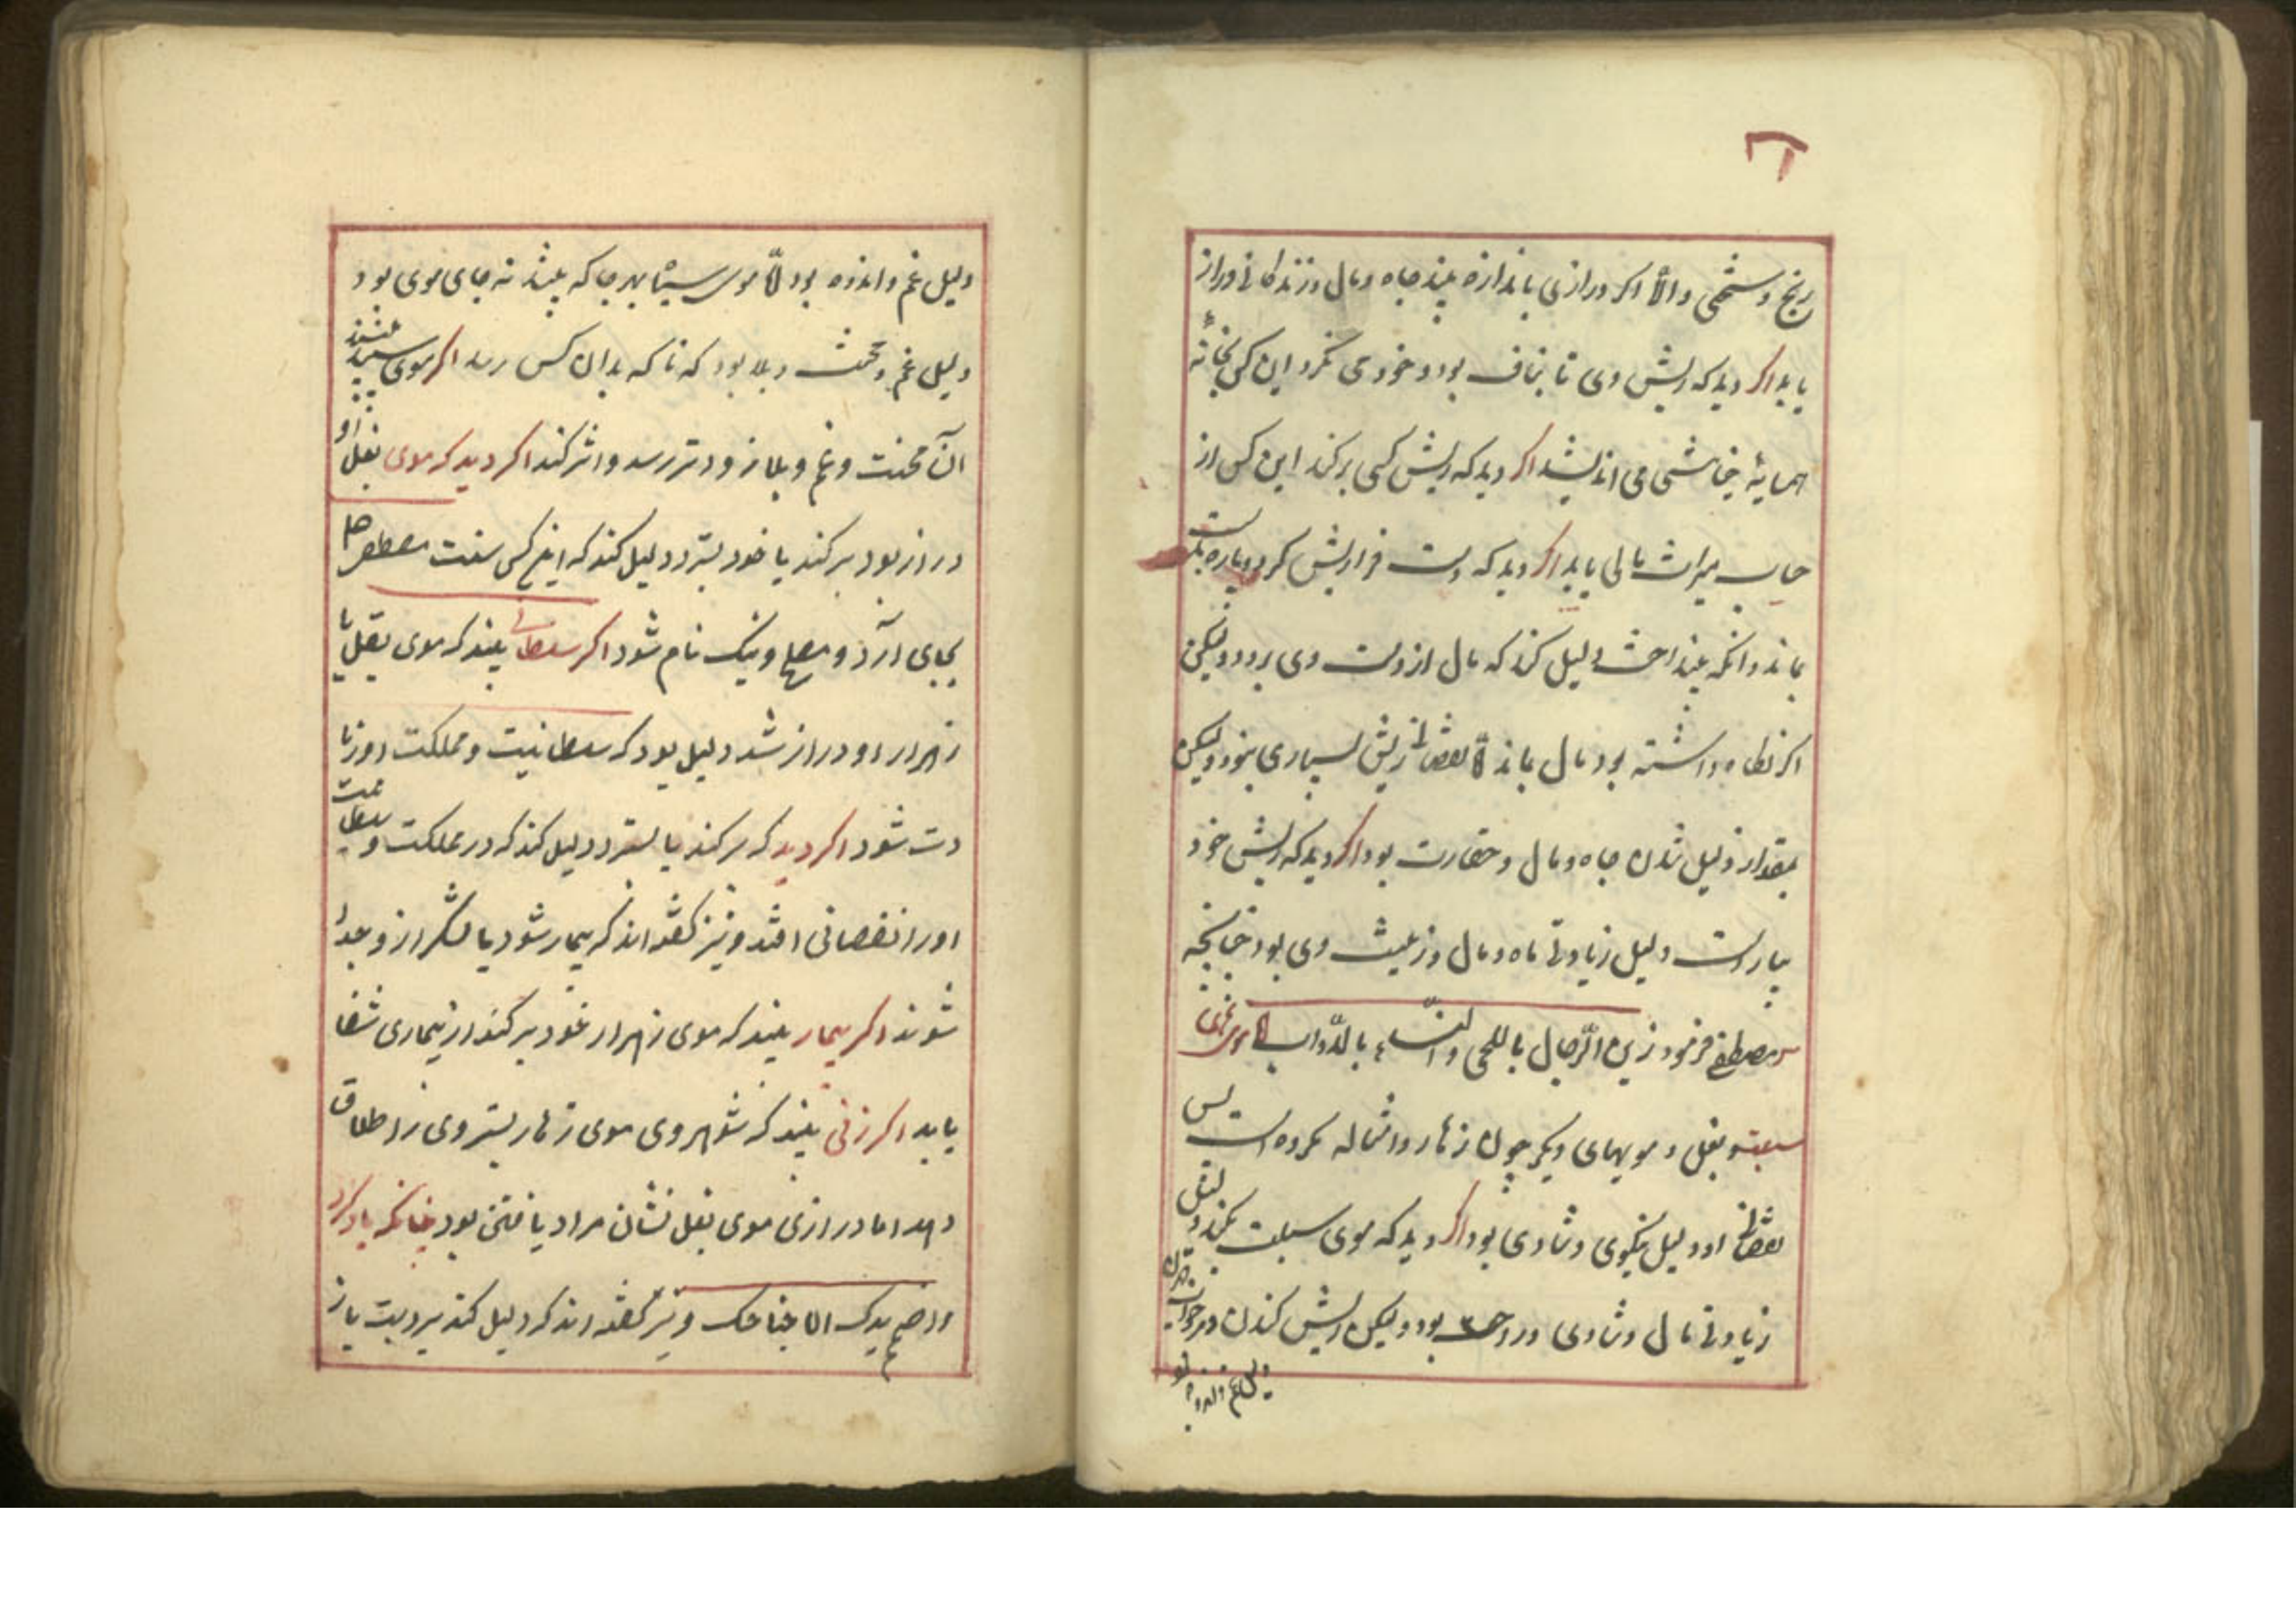 رنج و سختی والا اگر درازی باندازه بیند جاه و مال و زندگانی دراز
یابد اگر دید که ریش وی تا بناف بود و خود می نگرد این کس بخانه
همسایه می اندیشد اگر دید که ریش کسی برکند این کس از
میراث مالی یابد اگر دید که دست فرا ریش کرد و پاره بدست
بماند وانکه بینداخت دلیل کند که مال از دست وی برود ولیکن
اگر نگاه داشته بود مال بماند اما نقصان ریش بسیاری بنود ولیکن
بمقدار ذلیل شدن جاه و مال و حقارت بود اگر دید که ریش خود
بیاراست دلیل زیادتی جاه و مال و زینت وی بود چنانچه
مصطفی فرمود زین الرجال باللحی والنساء بالذوائب اما موی
سبلت و بغل و مویهای دیگر چون زهار وامثاله مکروه است پس
نقصان او دلیل نیکوی و شادی بود اگر دید که موی سبلت بکند دلیل
زیادتی مال و شادی و راحت بود ولیکن ریش کندن در خواب
دلیل غم و اندوه بود
دلیل غم و اندوه بود اما موی سیاه بهر جا که بیند نه جای موی بود
دلیل غم و محنت و بلا بود که ناکه بدان کس رسد اگر موی سپید بیند
آن محنت و غم و بلا زودتر رسد و اثر کند اگر دید که موی بغل او
دراز بود برکند یا خود بسترد دلیل کند که این کس سنت مصطفی
بجای آرد و مصلح و نیک نام شود اگر سلطانی بیند که موی بغل یا
زهار او دراز شد دلیل بود که سلطانیت و مملکت او زیا
دت شود اگر دید که برکند یا بسترد دلیل کند که در مملکت و سلطنت
او را نقصانی افتد و نیز گفته اند که بیمار شود یا لشکر از و جدا
شوند اگر بیمار بیند که موی زهار خود برکند از بیماری شفا
یابد اگر زنی بیند که شوهر وی موی زهار بسترد وی را طلاق
دهد اما درازی موی بغل نشان مراد یافتن بود چنانکه یاد کرد
واضمم یدک الی جناحک و نیز گفته اند که دلیل کند بر دیت یا ز